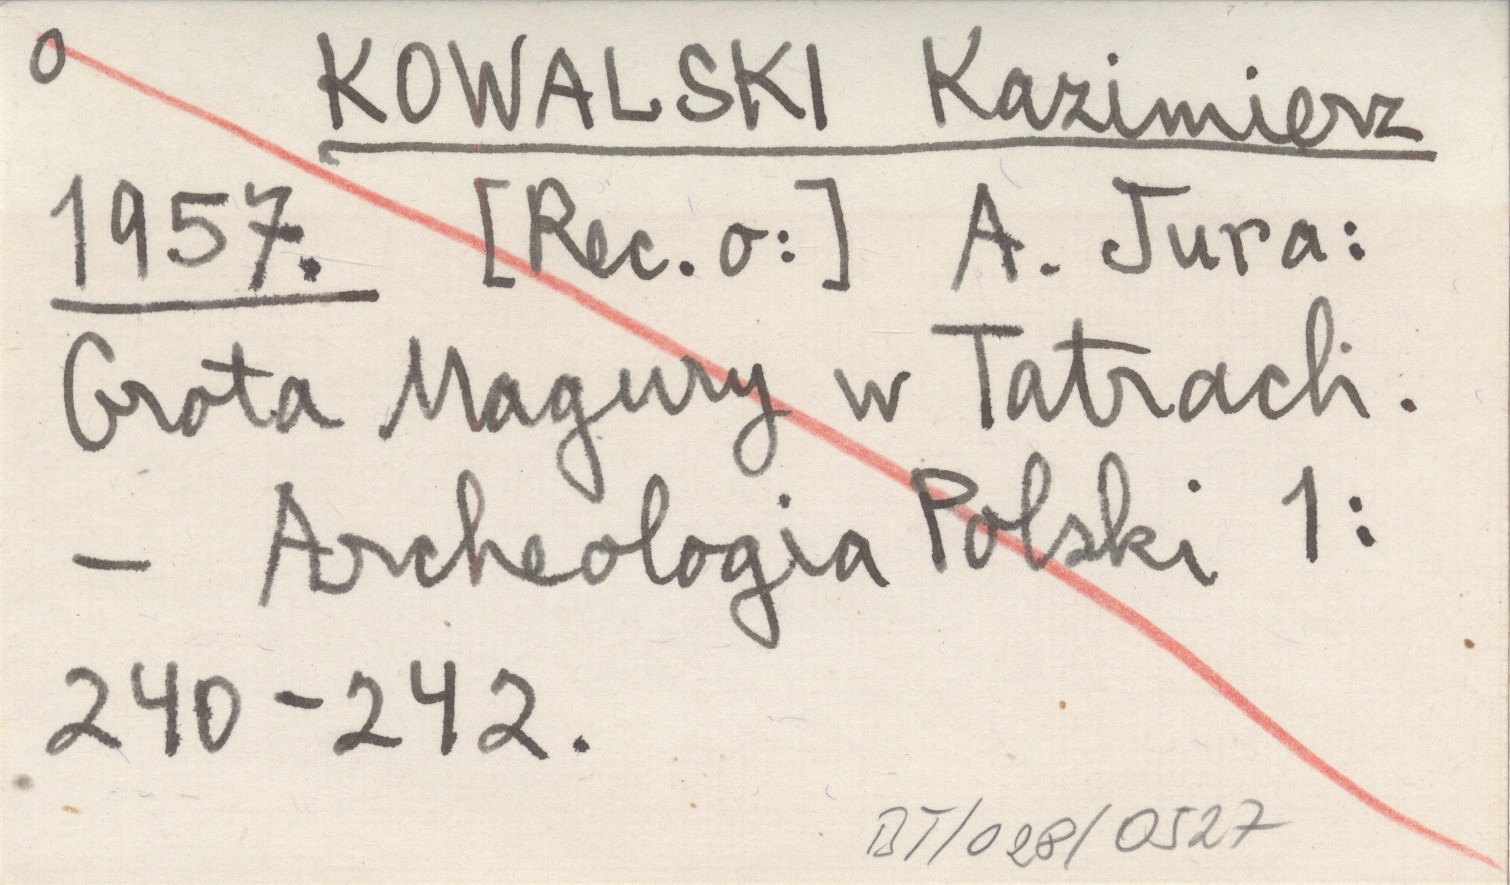 o KOWALSKI Kazimierz
1957. [Rec. o:] A. Jura:
Grota Magury w Tatrach.
— Archeologia Polski 1:
240-242.
BT/028/0527